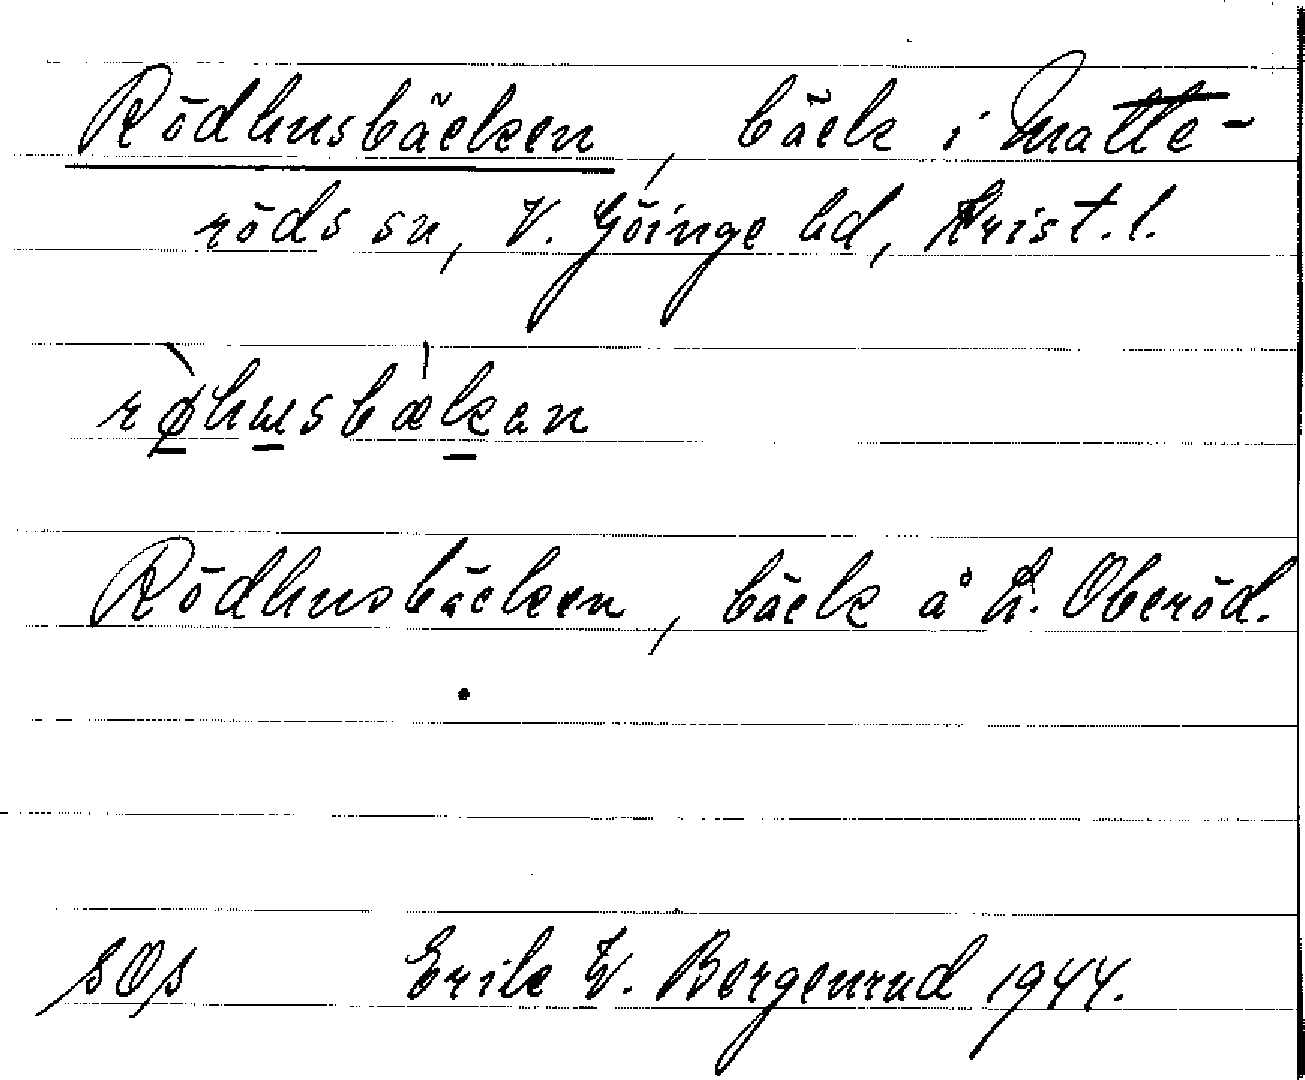 Rödhusbäcken, bäck i Matte-
röds sn, V. Göinge hd, Krist. l.
Rödhusbäcken, bäck å L. Oberöd.
SOS Erik W. Bergenrud 1944.